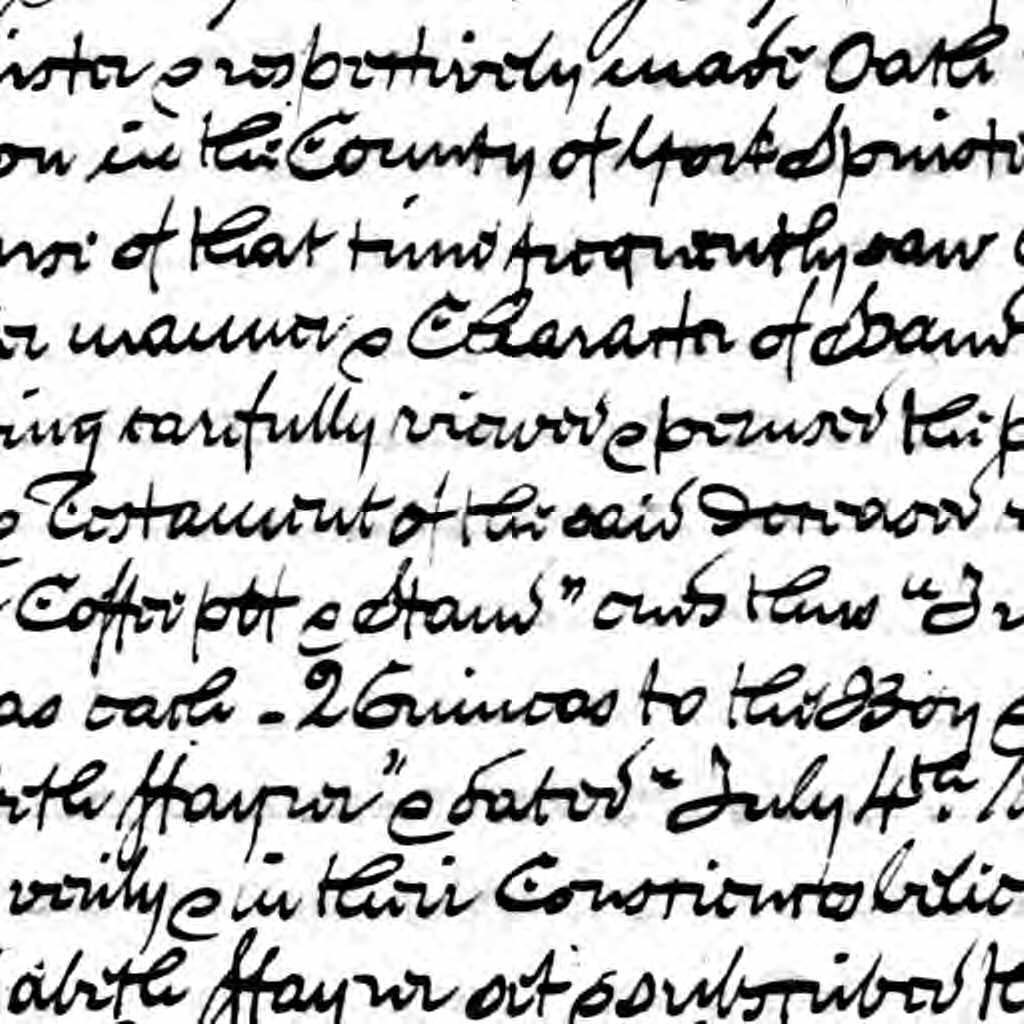 ister & respectively made Oath
on in the County of York Spinste
urse of that time frequently saw
er manner & Character of Hand
ing carefully viewed & perused the p
& Testament of the said Deceased
Coffee pott & Stand" ends thus "I
as each - 2 Guineas to the Boy &
eth Hayner" & dated "July 4th.
verily & in their Consciences belie
abeth Hayner set & subscribed t